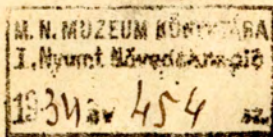 M. N. MUZEUM KÖNYVTÁRA
I. Nyomt Növedéknapló
1934 év 454 sz.